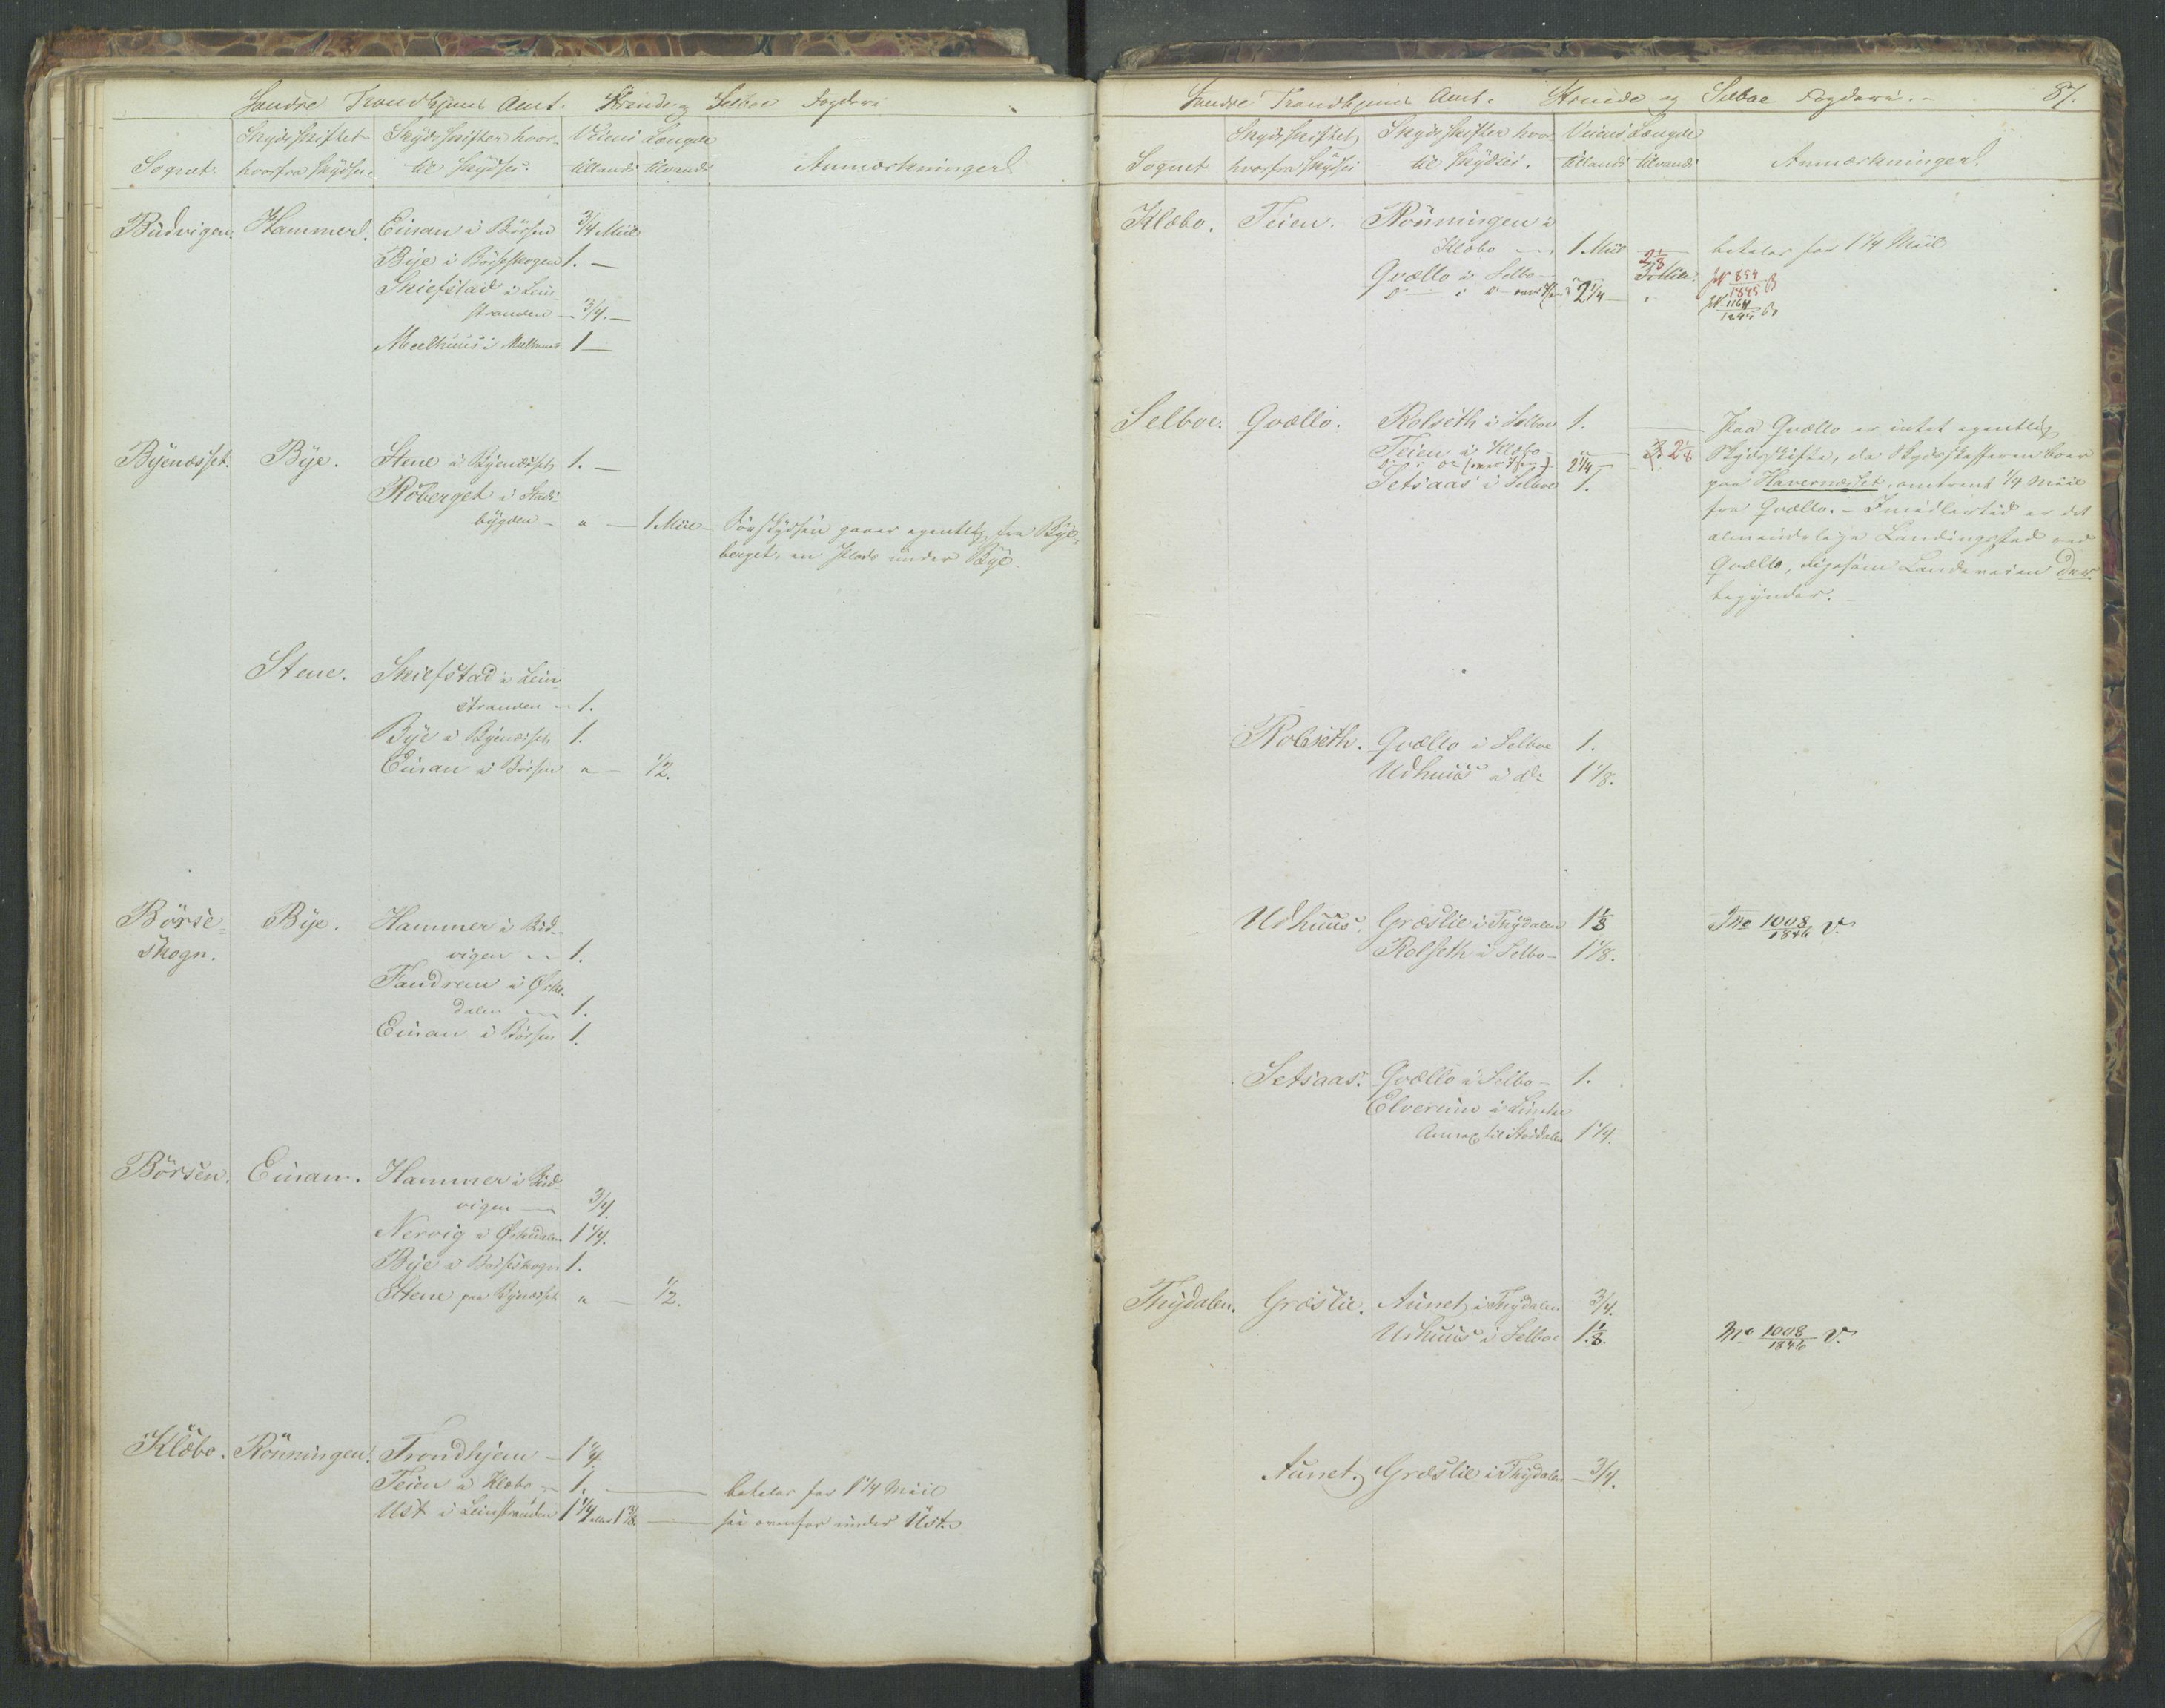 Søndre Trondhjems Amt. Strinde og Selboe Fogderi
Sognet. Skydsskiftet hvorfra skydses. Skydsskifter hvortil skydses. Veiens Længde tillands tilvands Anmærkninger
Budvigen. Hammer. Einan i Börsen 3/4 Miil
Bye i Börseskogen 1. —
Skiefstad i Leinstranden — 3/4. —
Meelhuus i Meelhuus 1 —
Bynæsset. Bye. Stene i Bynæsset 1. —
Röberget i Stadsbygden — " — 1 Miil — Söeskydsen gaaer egentlig fra Byeberget, en Plads under Bye.
Stene. Skiefstad i Leinstranden — 1.
Bye i Bynæsset 1.
Einan i Börsen " — 1/2.
Börseskogn. Bye. Hammer i Budvigen — 1.
Fandrem i Ørkedalen — 1.
Einan i Börsen 1.
Börsen. Einan. Hammer i Budvigen — 3/4.
Nervig i Ørkedalen 1 1/4.
Bye i Börseskogn 1.
Stene paa Bynæsset " — 1/2.
Klöbo. Rönningen. Trondhjem — 1 1/4
Teien i Klæbo — 1. — betales for 1 1/4 Miil
Ust i Leinstranden 1 1/4 — see ovenfor under Ust.
Søndre Trondhjems Amt. Strinde og Selboe Fogderi. 87.
Sognet. Skydsskiftet hvorfra skydses Skydsskifter hvortil skydses. Veiens Længde tillands tilvands Anmærkninger.
Klæbo. Teien. Rönningen i Klæbo — 1 Miil — betales for 1 1/4 Miil
Qvello i Selbo — " 2 1/8 3 Mile 894/1845
2 1/4 — " 1164
Selboe. Qvello. Rolseth i Selboe 1. — Paa Qvello er intet egentlig
Teien i Klæbo — " 3. 2 1/8 Skydsskifte, da Skydsskafferen boer
2 1/4 — paa Havernæsset, omtrent 1/4 Miil
Setsaas i Selboe 1. fra Qvello. — Imidlertid er det
almindelige Landingsstad ved
Qvello, ligesom Landeveien der
begynder. —
Rolseth. Qvello i Selboe 1.
Udhuus i do 1 1/8.
Udhuus. Græslie i Thydalen 1 1/8 Jno 1008/1846 V.
Rolseth i Selbo — 1 1/8.
Setsaas. Qvello i Selbo — 1.
Elverum i
Annex til Størdalen 1 1/4.
Thydalen. Græslie. Aunet i Thydalen 3/4.
Udhuus i Selboe 1 1/8. Jno 1008/1846 V.
Aunet. Græslie i Thydalen — 3/4.